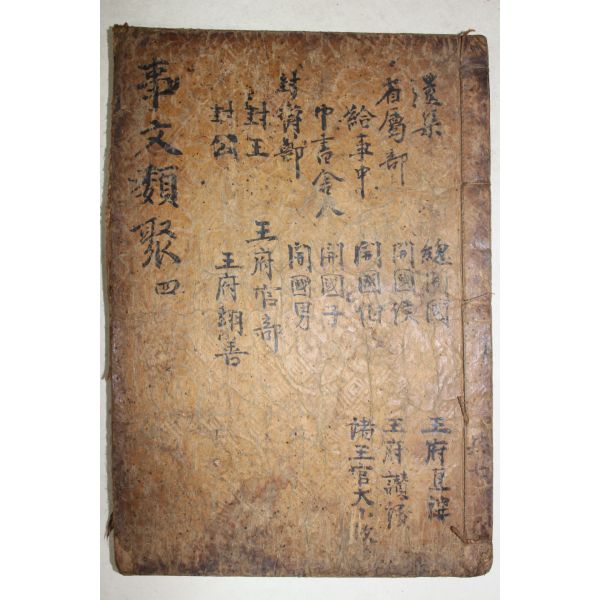 事文類聚 四
遺集
省屬部
給事中
中書舍人
封爵部
封王
封公
總開國
開國侯
開國伯
開國子
開國男
王府官部
王府翊善
王府直講
王府讚讀
諸王官大小